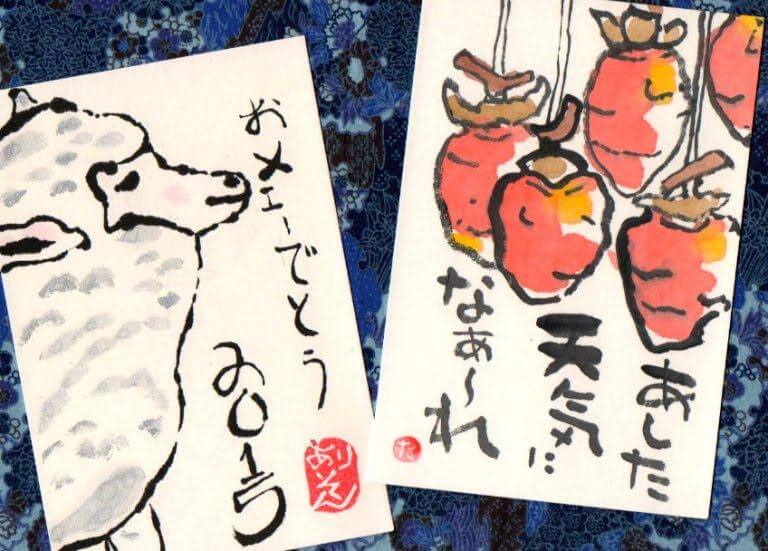 おメェーでとう
2015
ありそん
あした
天気に
なぁ〜れ